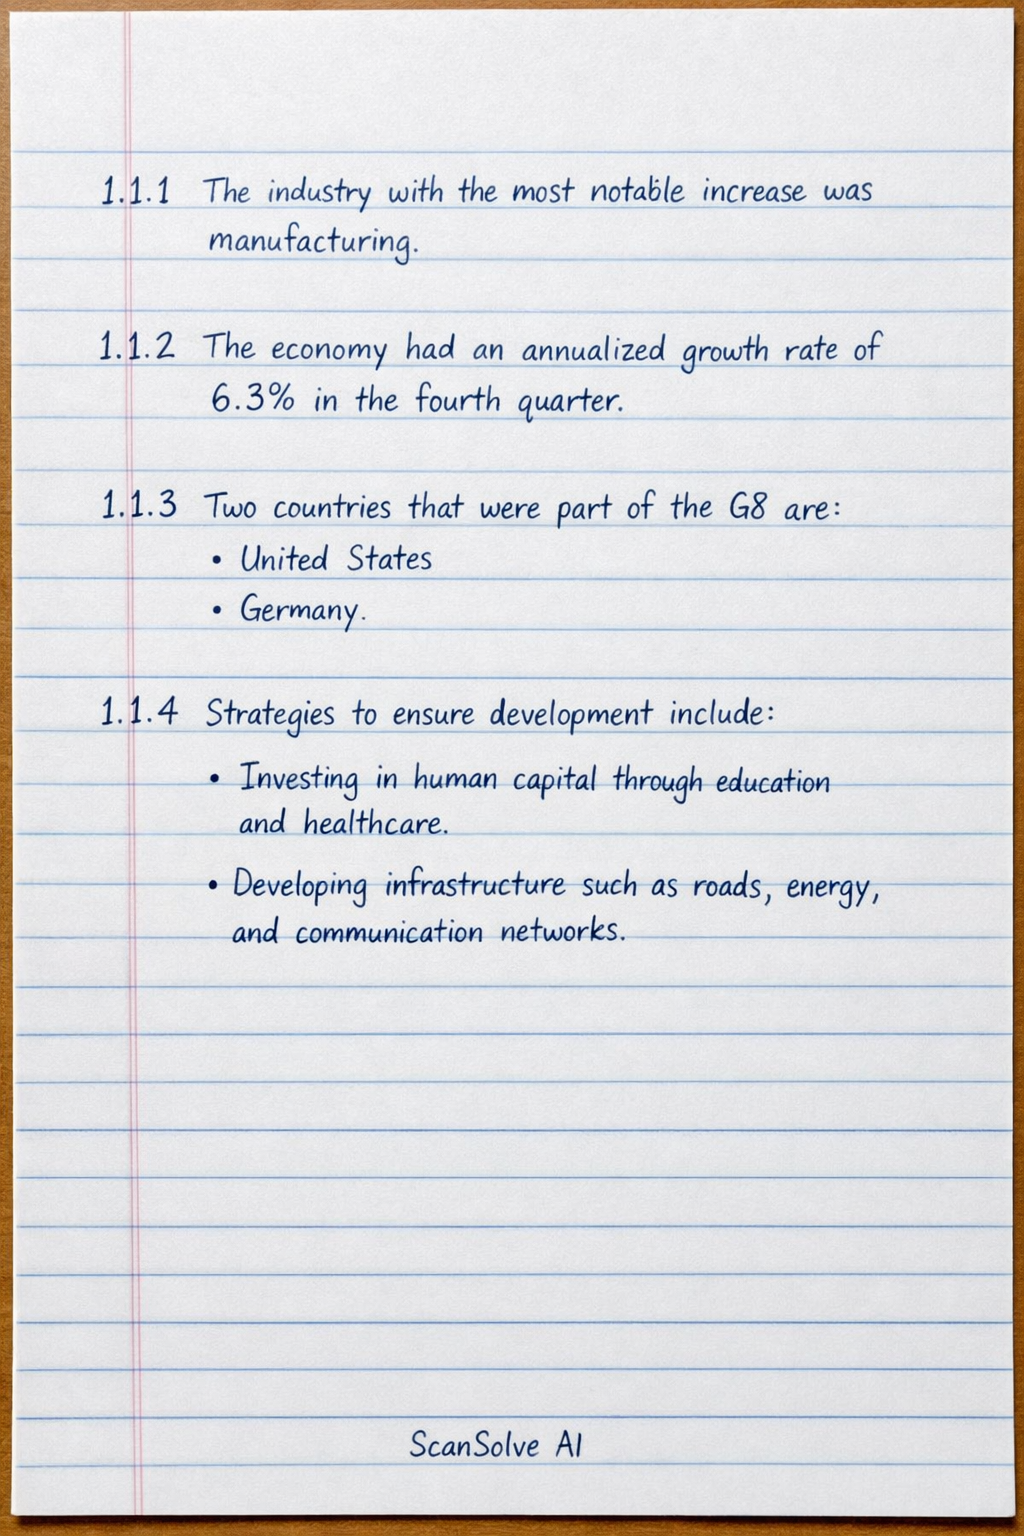 1.1.1 The industry with the most notable increase was
manufacturing.
1.1.2 The economy had an annualized growth rate of
6.3% in the fourth quarter.
1.1.3 Two countries that were part of the G8 are:
• United States
• Germany.
1.1.4 Strategies to ensure development include:
• Investing in human capital through education
and healthcare.
• Developing infrastructure such as roads, energy,
and communication networks.
ScanSolve AI